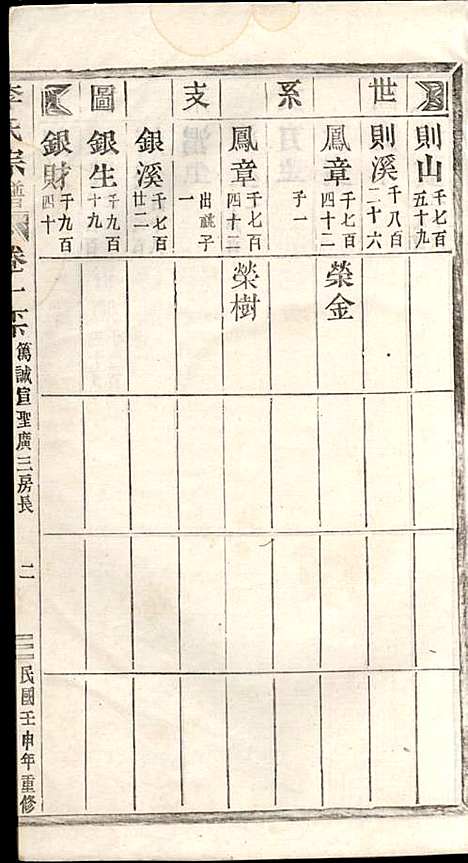 世系支圖
則山 千七百五十九
則溪 千八百二十六
鳳章 千七百四十二
子一
榮金
鳳章 千七百四十二
榮樹
出祧子一
銀溪 千七百廿二
銀生 千九百十九
銀財 千九百四十
李氏宗譜
卷一下
篤誠宣聖廣三房長
二
民國壬申年重修